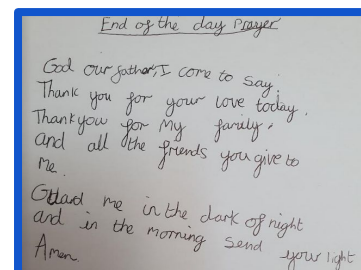 End of the day Prayer
God our father, I come to say.
Thank you for your love today.
Thankyou for My family.
and all the friends you give to
Me.
Guard me in the dark of night
and in the morning send your light
Amen